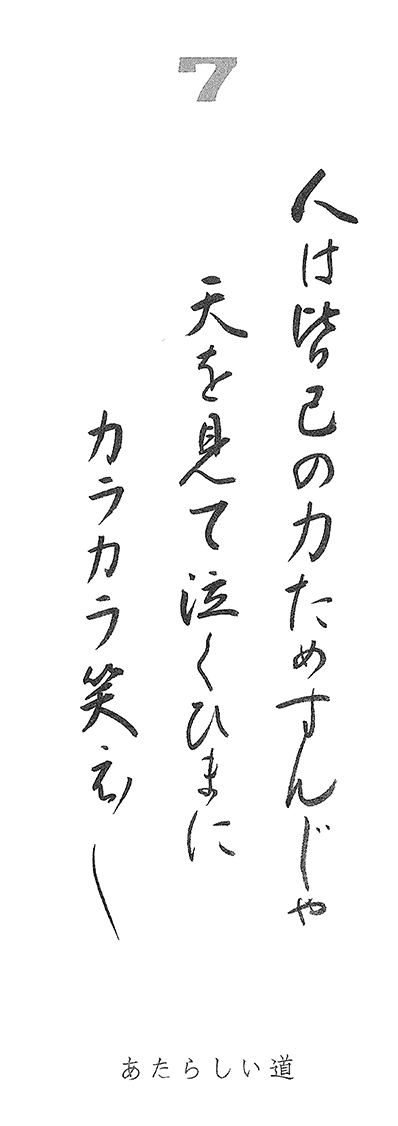 7
人は皆己の力ためすんじゃ
天を見て泣くひまに
カラカラ笑えー
あたらしい道